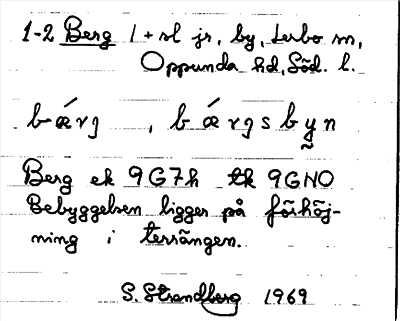 1-2 Berg 1 + sl jr, by, Lerbo sn,
Oppunda hd, Söd. l.
bǽrg , bǽrgsby̰n
Berg ek 9G7h tk 9GNO
Bebyggelsen ligger på förhöj-
ning i terrängen.
S. Strandberg 1969